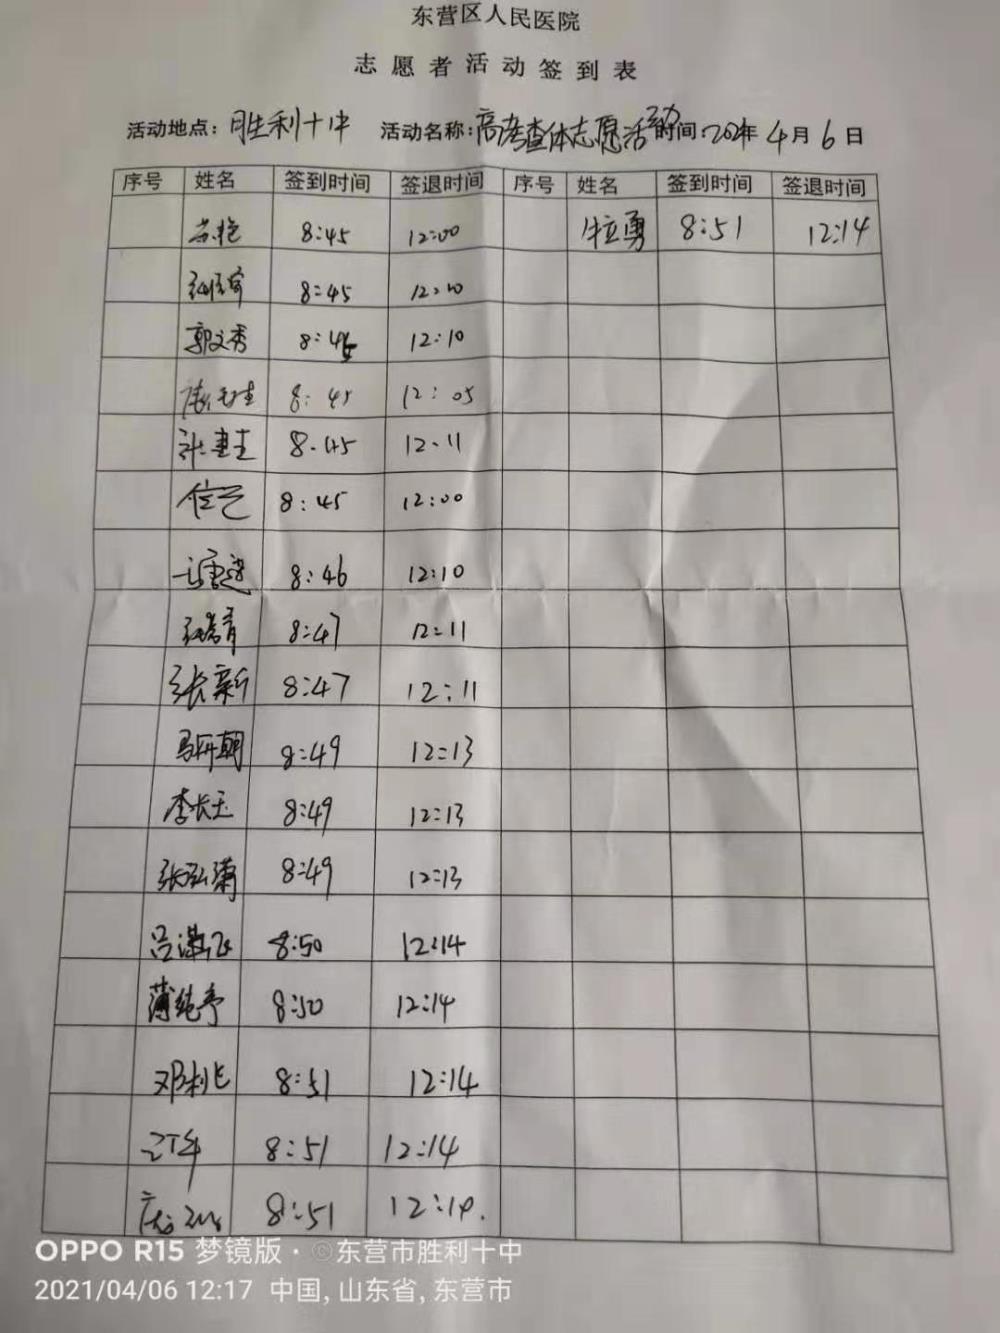 东营区人民医院
志愿者活动签到表
活动地点：胜利十中 活动名称：高考查体志愿活动 时间 2021年4月6日
序号 姓名 签到时间 签退时间 序号 姓名 签到时间 签退时间
8:45 12:00 牛立勇 8:51 12:14
8:45 12:10
郭文秀 8:45 12:10
8:45 12:05
8:45 12:11
8:45 12:00
8:46 12:10
8:47 12:11
张新 8:47 12:11
8:49 12:13
李长玉 8:49 12:13
张弘 8:49 12:13
吕 8:50 12:14
薄纯亭 8:50 12:14
邓利 8:51 12:14
8:51 12:14
8:51 12:14.
OPPO R15 梦镜版·©东营市胜利十中
2021/04/06 12:17 中国, 山东省, 东营市